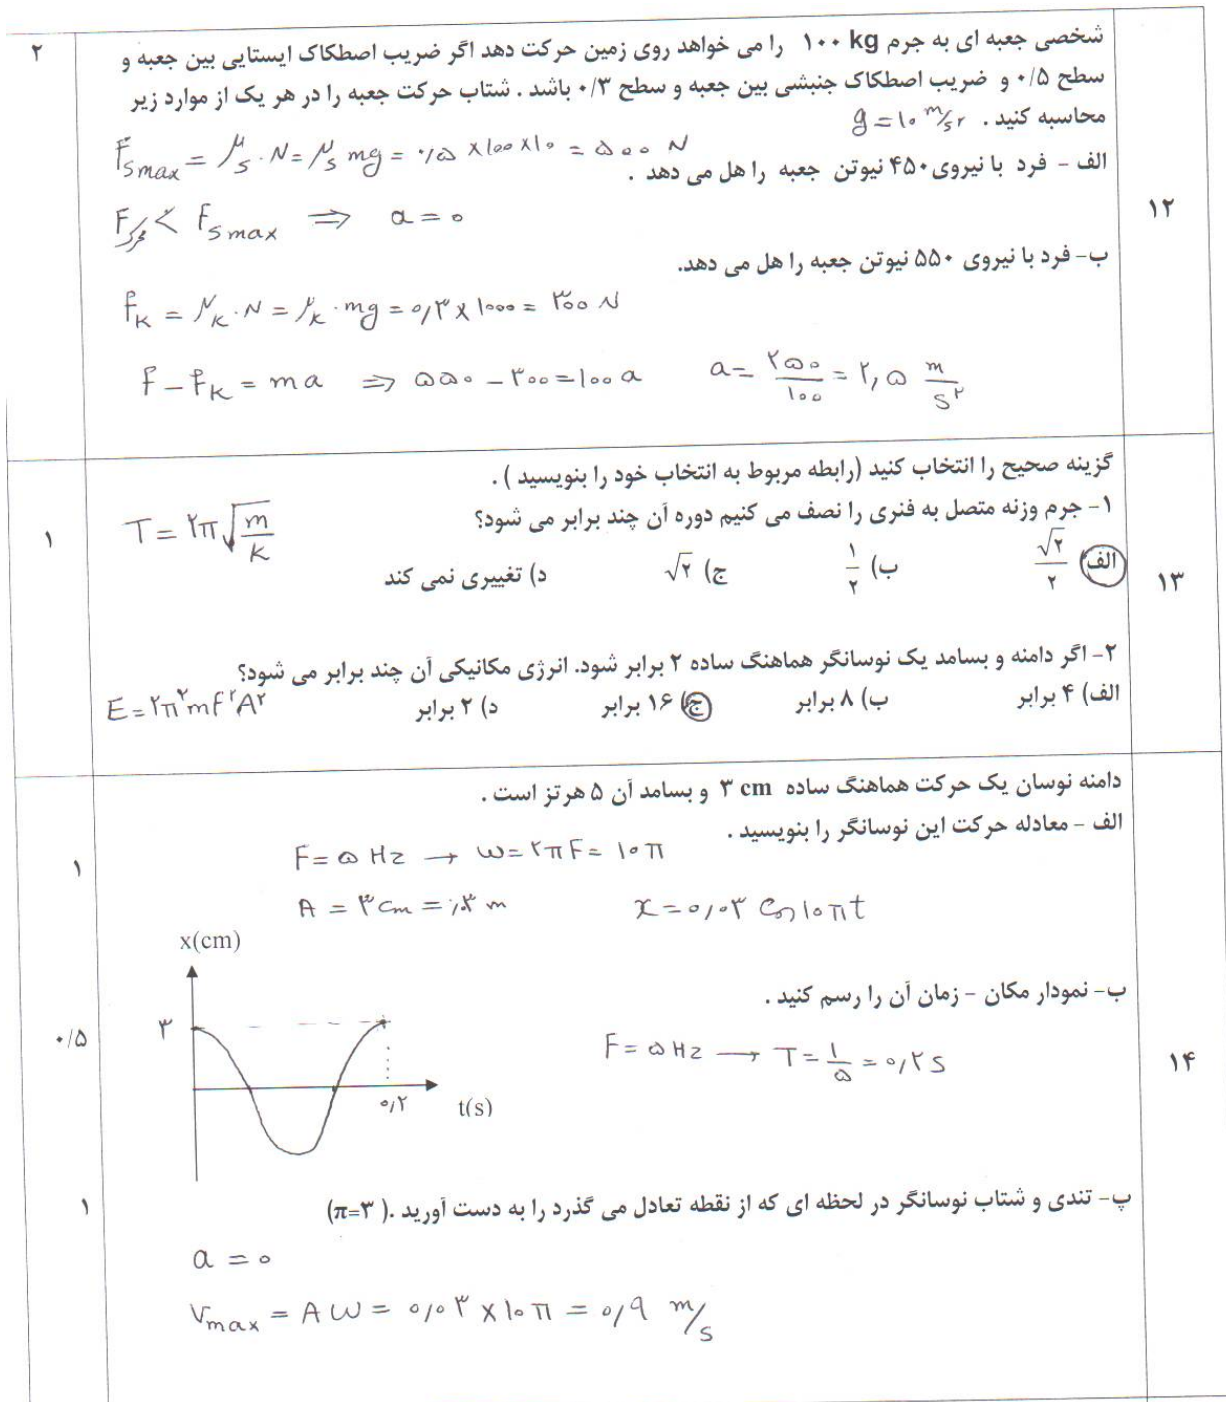 ۲
شخصی جعبه ای به جرم ۱۰۰ kg را می خواهد روی زمین حرکت دهد اگر ضریب اصطکاک ایستایی بین جعبه و
سطح ۰/۵ و ضریب اصطکاک جنبشی بین جعبه و سطح ۰/۳ باشد . شتاب حرکت جعبه را در هر یک از موارد زیر
محاسبه کنید . g = ۱۰ m/s۲
F_Smax = μ_S . N = μ_S mg = ۰/۵ × ۱۰۰ × ۱۰ = ۵۰۰ N
الف - فرد با نیروی ۴۵۰ نیوتن جعبه را هل می دهد .
۱۲
F محرک < f_Smax ⇒ a = ۰
ب- فرد با نیروی ۵۵۰ نیوتن جعبه را هل می دهد.
f_K = μ_K . N = μ_K . mg = ۰/۳ × ۱۰۰۰ = ۳۰۰ N
F - f_K = ma ⇒ ۵۵۰ - ۳۰۰ = ۱۰۰ a a = ۲۵۰/۱۰۰ = ۲,۵ m/s۲
گزینه صحیح را انتخاب کنید (رابطه مربوط به انتخاب خود را بنویسید ) .
۱- جرم وزنه متصل به فنری را نصف می کنیم دوره آن چند برابر می شود؟
T = ۲π√(m/k)
۱
الف) √۲/۲ ب) ۱/۲ ج) √۲ د) تغییری نمی کند
۱۳
۲- اگر دامنه و بسامد یک نوسانگر هماهنگ ساده ۲ برابر شود. انرژی مکانیکی آن چند برابر می شود؟
الف) ۴ برابر ب) ۸ برابر ج) ۱۶ برابر د) ۲ برابر E = ۲π²mf²A²
دامنه نوسان یک حرکت هماهنگ ساده ۳ cm و بسامد آن ۵ هرتز است .
الف - معادله حرکت این نوسانگر را بنویسید .
۱
F = ۵ Hz → ω = ۲πF = ۱۰π
A = ۳ cm = ۰/۰۳ m x = ۰/۰۳ Cos ۱۰πt
x(cm)
ب- نمودار مکان - زمان آن را رسم کنید .
۰/۵
۳
F = ۵ Hz → T = ۱/۵ = ۰/۲ s
۱۴
۰/۲
t(s)
پ- تندی و شتاب نوسانگر در لحظه ای که از نقطه تعادل می گذرد را به دست آورید .( π=۳)
۱
a = ۰
V_max = Aω = ۰/۰۳ × ۱۰π = ۰/۹ m/s